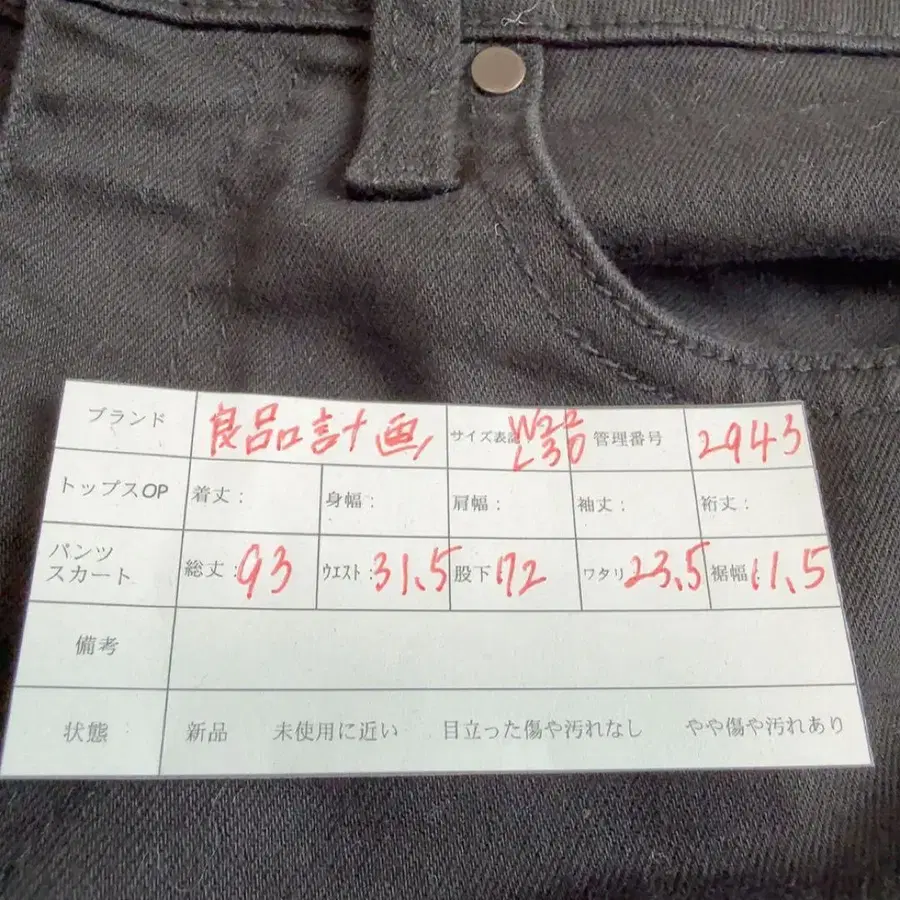 ブランド 良品計画 サイズ表記 W22 L30 管理番号 2943
トップスOP 着丈: 身幅: 肩幅: 袖丈: 裄丈:
パンツ スカート 総丈:93 ウエスト:31.5 股下 72 ワタリ 23.5 裾幅: 11.5
備考
状態 新品 未使用に近い 目立った傷や汚れなし やや傷や汚れあり